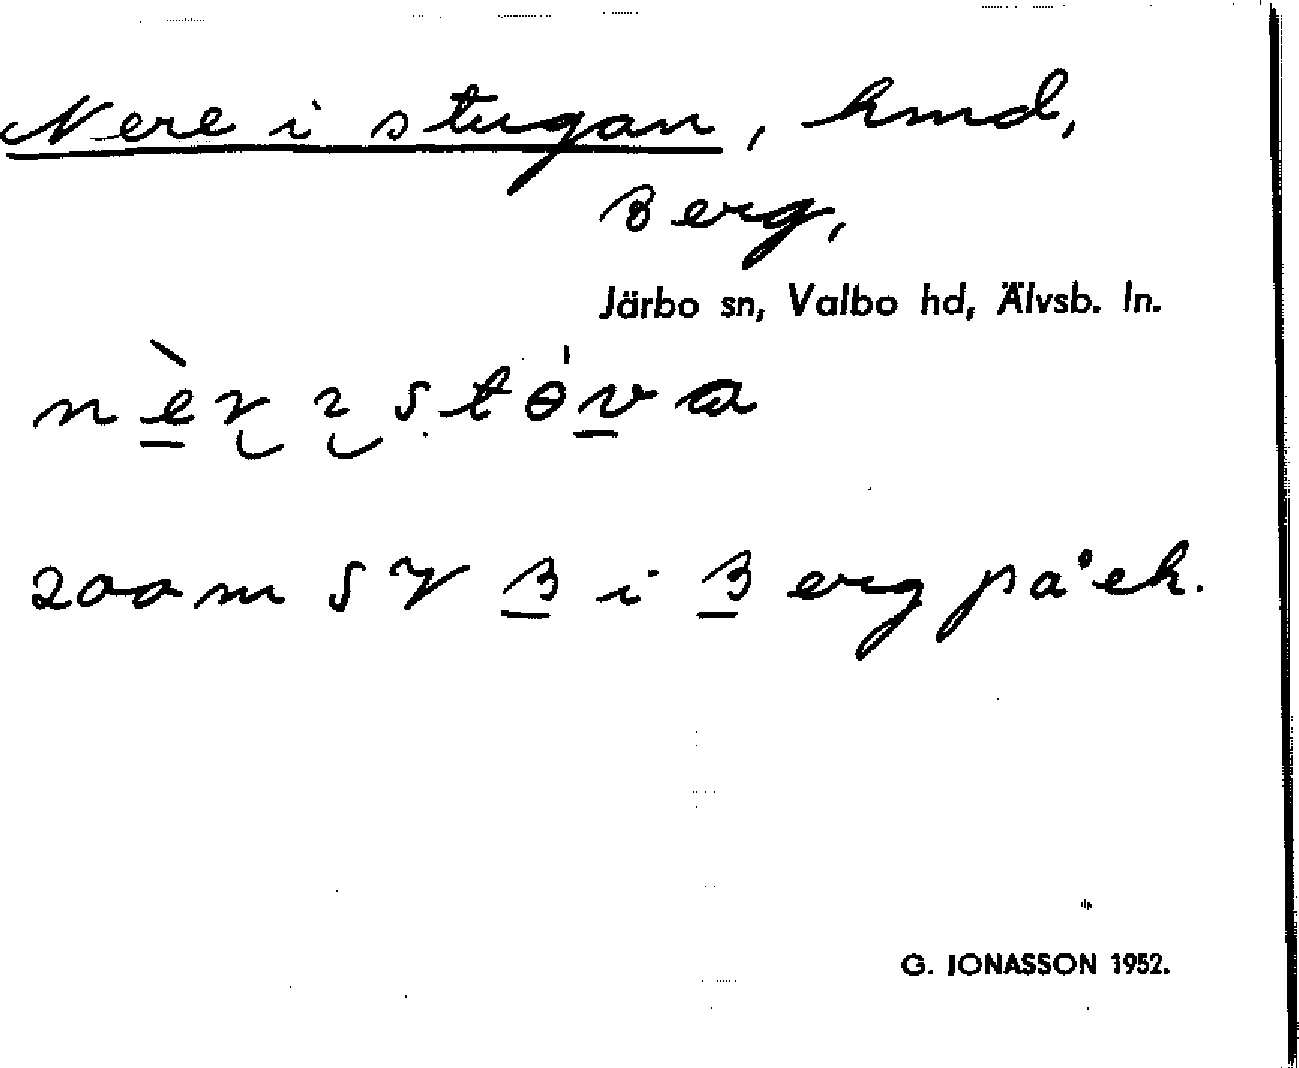 Nere i stugan, hmd,
Berg,
Järbo sn, Valbo hd, Älvsb. ln.
200 m SV B i Berg på ek.
G. JONASSON 1952.